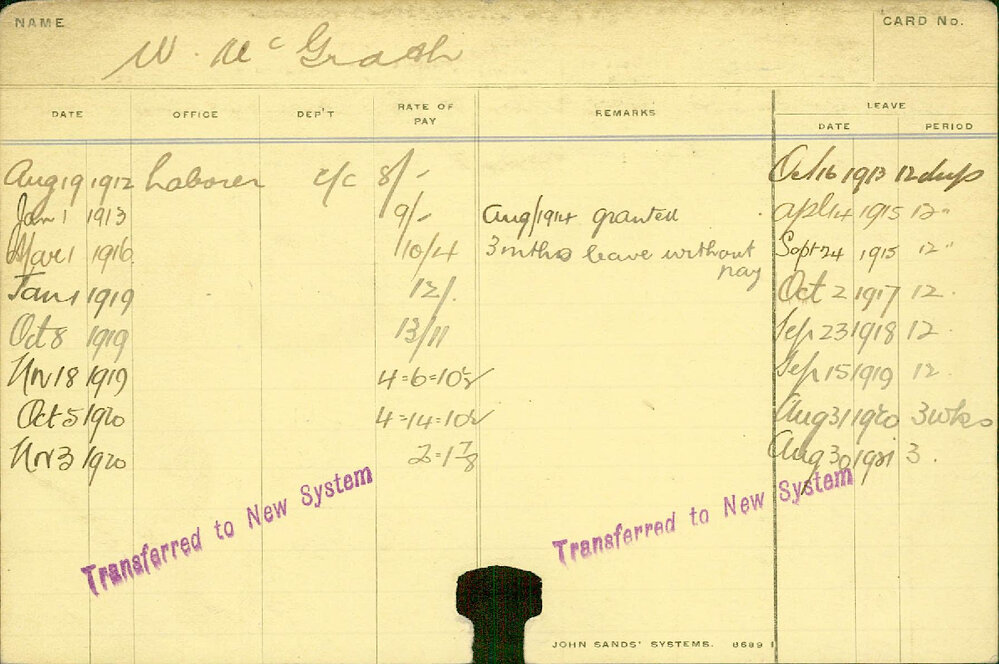 NAME
CARD No.
W. McGrath
DATE OFFICE DEP'T RATE OF PAY REMARKS LEAVE
DATE PERIOD
Aug 19 1912 Laborer c/c 8/- Oct 16 1913 12 days
Jan 1 1913 9/- Aug/1914 granted Apl 14 1915 12 "
Mar 1 1916 10/4 3 mths leave without pay Sept 24 1915 12 "
Jan 1 1919 12/. Oct 2 1917 12 .
Oct 8 1919 13/11 Sep 23 1918 12 .
Nov 18 1919 4=6=10½ Sep 15 1919 12 .
Oct 5 1920 4=14=10½ Aug 31 1920 3 wks
Nov 3 1920 2=1⅞ Aug 30 1921 3 .
Transferred to New System
Transferred to New System
JOHN SANDS' SYSTEMS. 8689